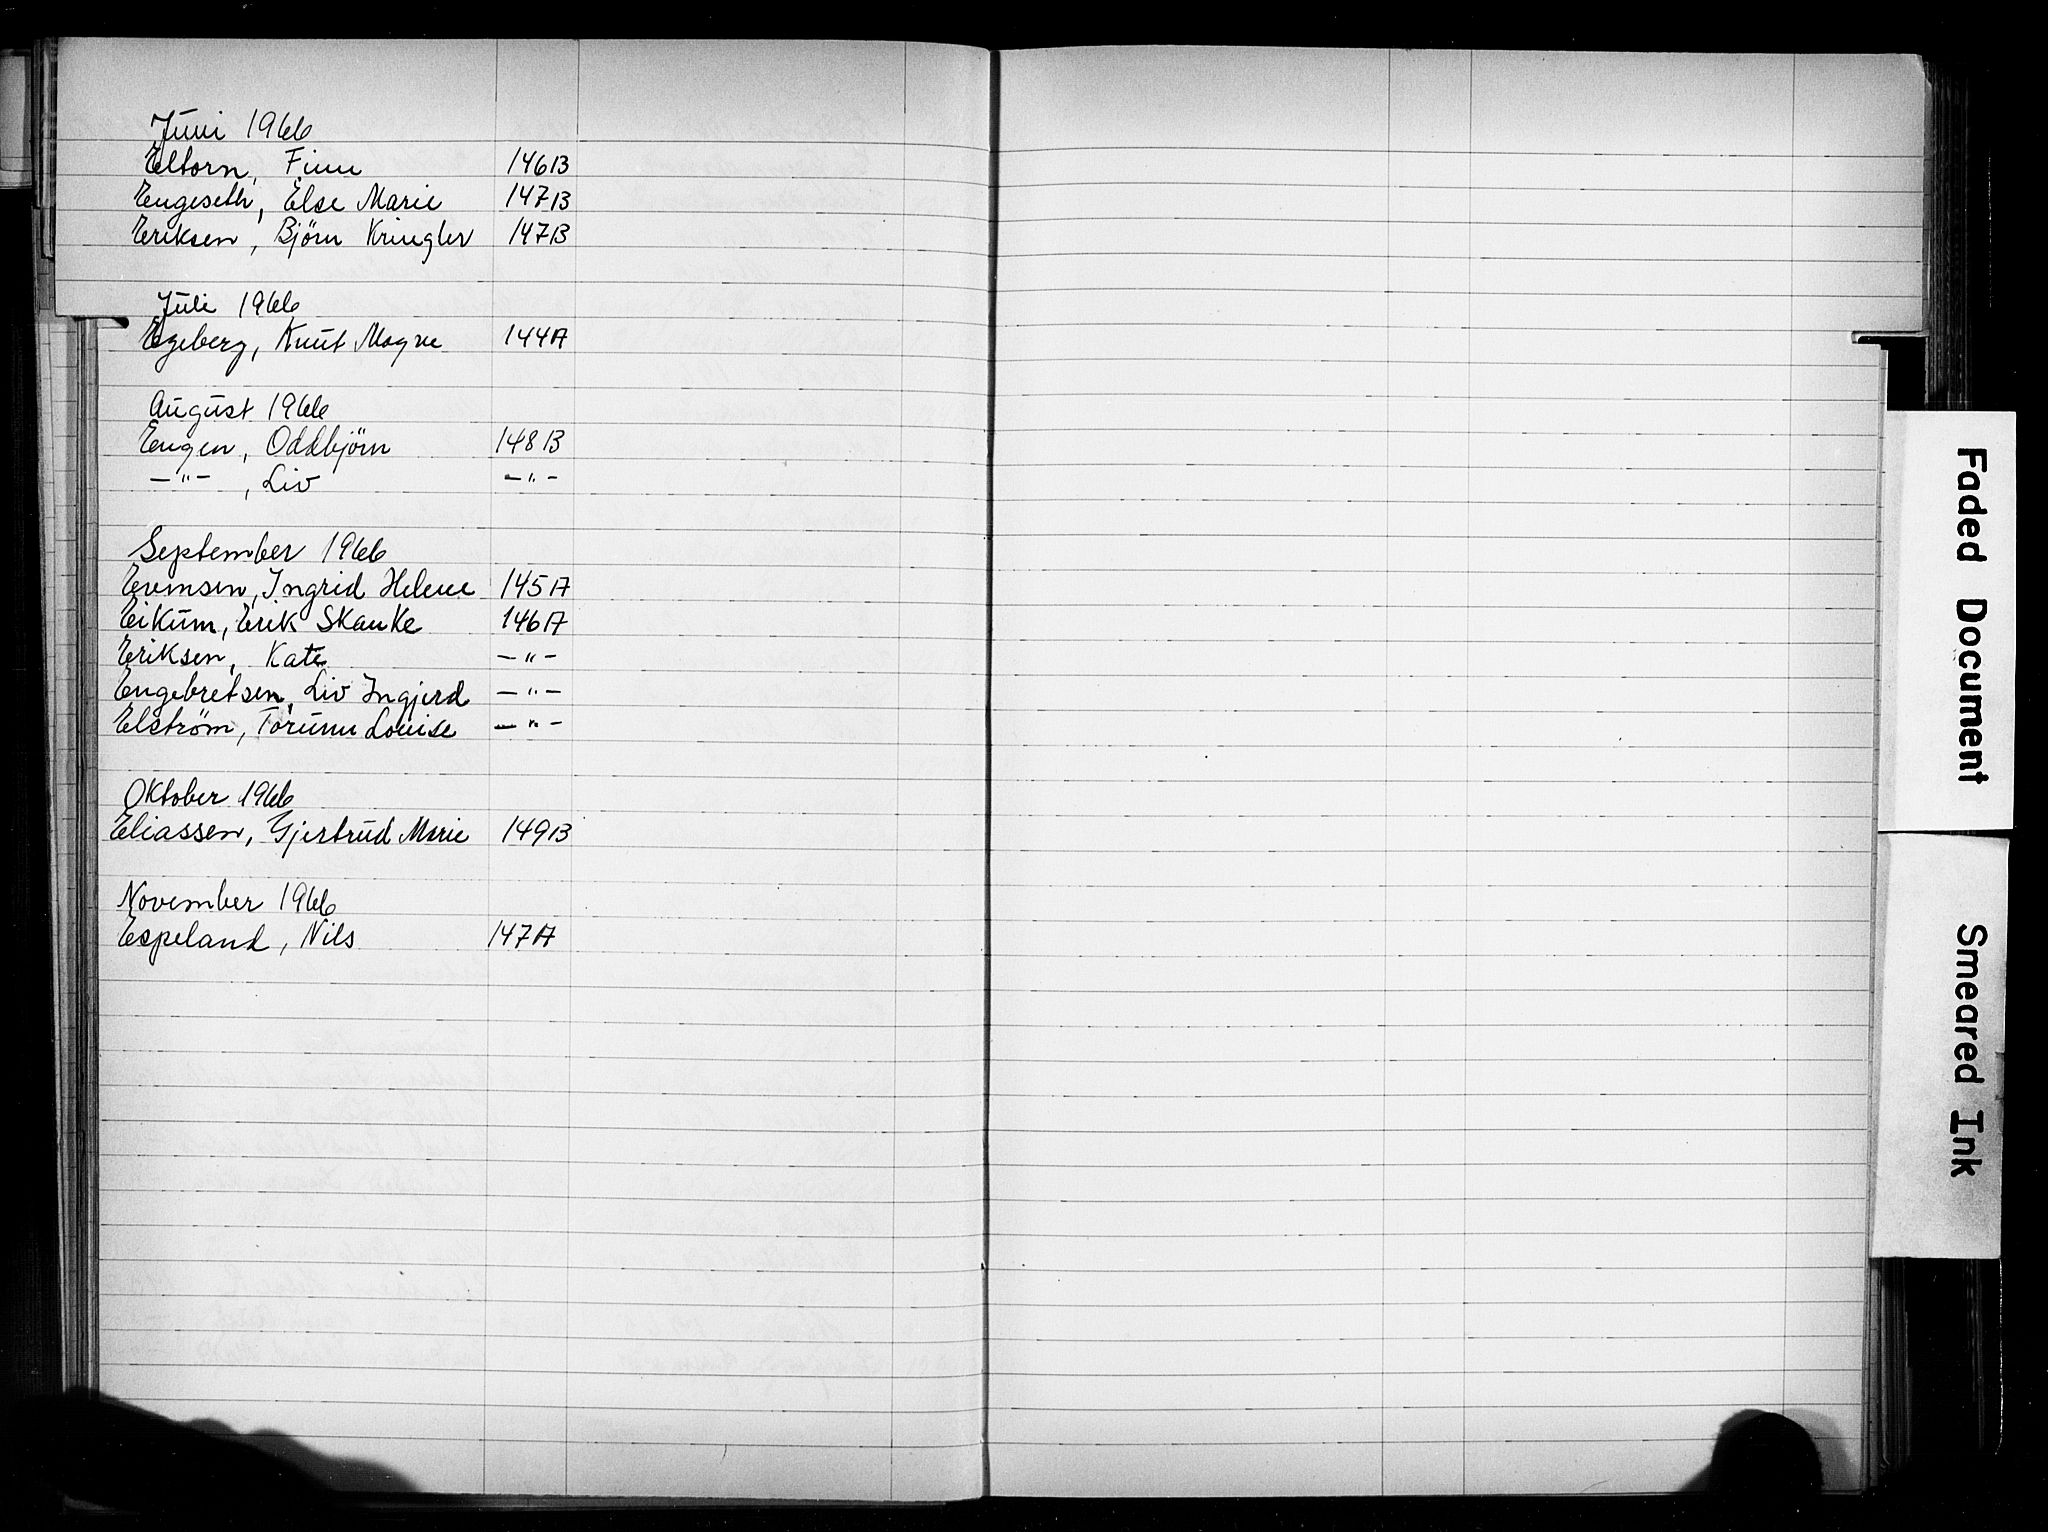 Juni 1966
Eltorn, Finn 146B
Engeseth, Else Marie 147B
Eriksen, Bjørn Kringler 147B
Juli 1966
Egeberg, Knut Magne 144A
August 1966
Engen, Oddbjörn 148B
—"— , Liv —"—
September 1966
Evensen, Ingrid Helene 145A
Eikum, Erik Skanke 146A
Eriksen, Kate —"—
Engebretsen, Liv Ingjerd —"—
Elström, Torunn Louise —"—
Oktober 1966
Eliassen, Gjertrud Marie 149B
November 1966
Espeland, Nils 147A
Faded Document
Smeared Ink